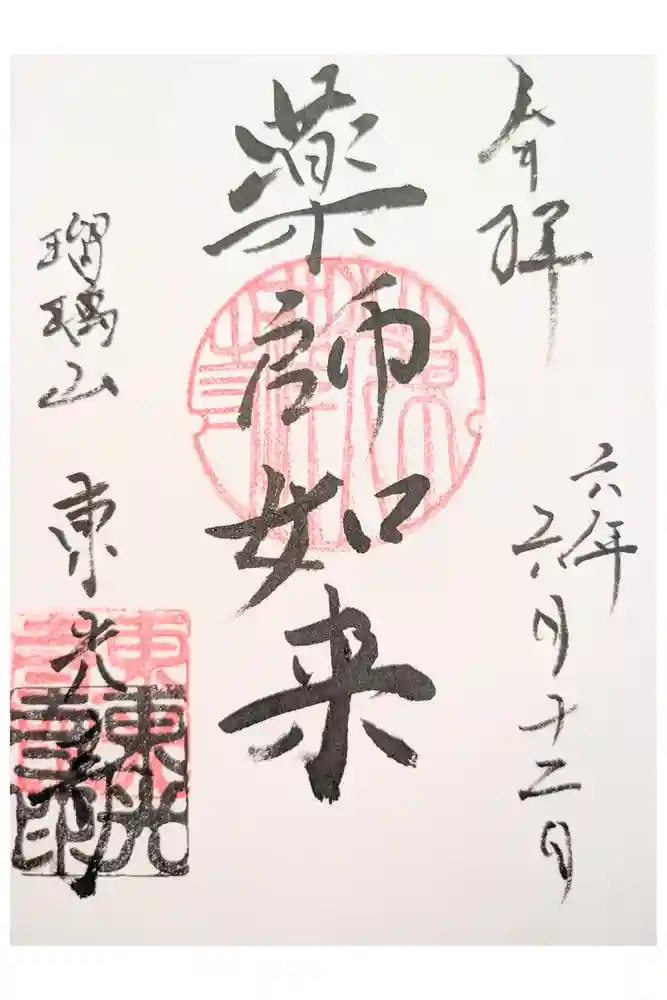 奉拝
六年
六月十二日
薬師如来
瑠璃山 東光寺
東光寺印